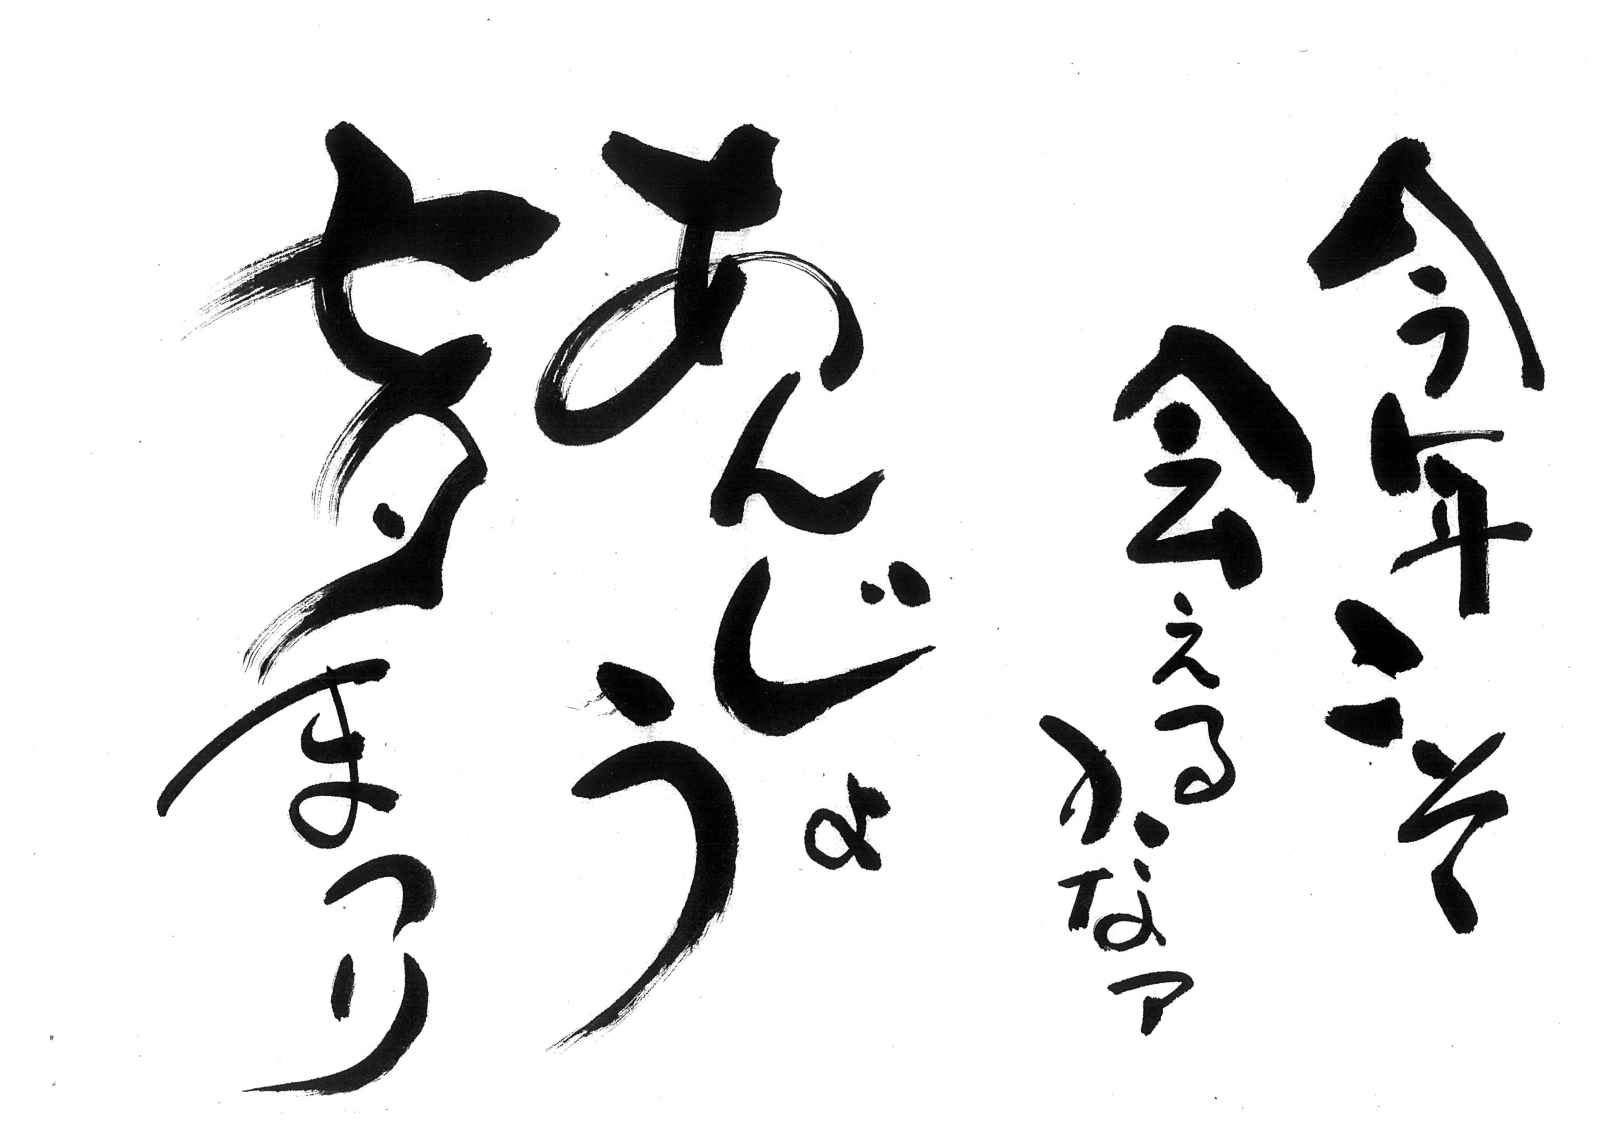 今年こそ
会えるかなァ
あんじょう
七夕まつり